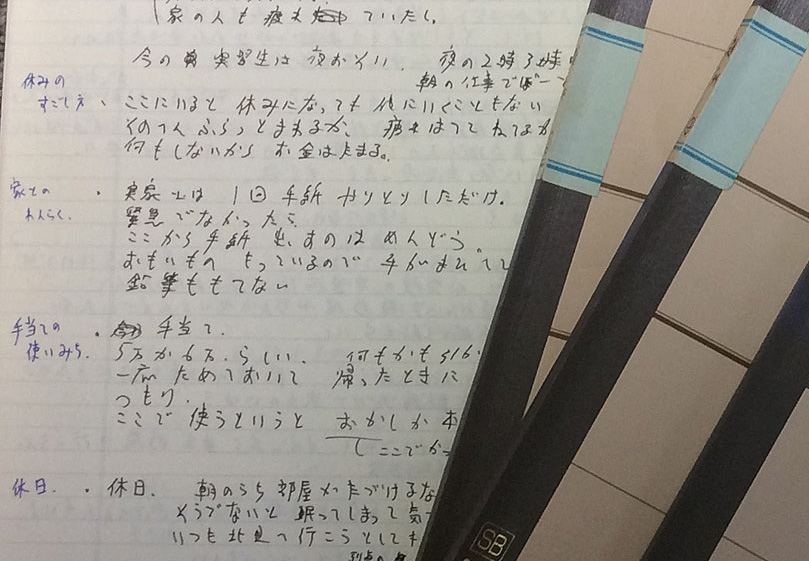 家の人も疲れていたし。
今の実習生は夜おそい。 夜の2時3時
朝の仕事でぼーっ
休みの
すごし方・ここにいると休みになっても他にいくこともない
そのへんふらっとまわるか、疲れはててねてるか
何もしないからお金はたまる。
家との
れんらく。・実家とは1回手紙やりとりしただけ。
緊急でなかったら
ここから手紙出すのはめんどう。
おもいものもっているので手がまれてて
鉛筆ももてない
手当ての
使いみち。・手当て。
5万か6万らしい。 何もかも引か
一応ためておいて 帰ったときに
つもり。
ここで使うというと おかしか本
ここでかっ
休日。・休日。 朝のうち部屋かたづけるな
そうでないと眠ってしまって気
いつも北見へ行こうとしても
SB